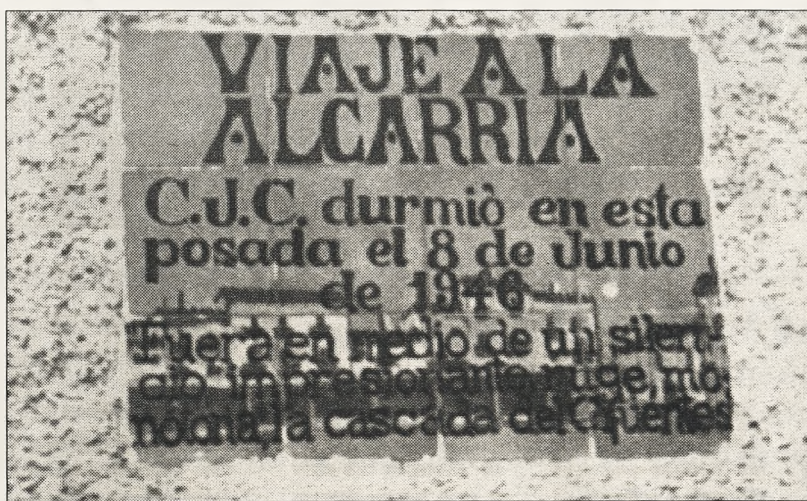 VIAJE A LA
ALCARRIA
C.J.C. durmiò en esta
posada el 8 de Junio
de 1946
Fuera en medio de un silen-
cio impresionante, ruge, mo-
notona, la cascada del Cifuentes